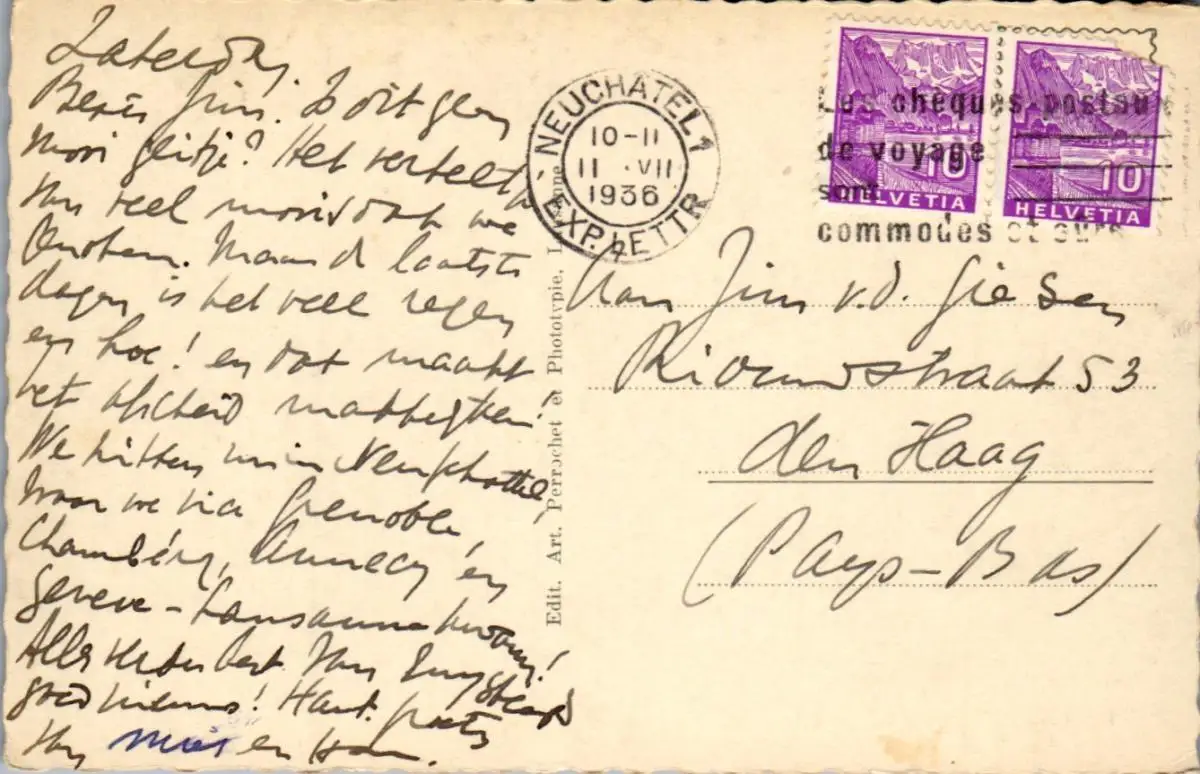 Zaterdag.
Beste Jim. Is dit geen
mooi gezicht? Het vertelt
van veel moois dat we
zagen. Maar de laatste
dagen is het veel regen
en hoe! en dat maakt
het afscheid makkelijker!
We zitten nu in Neufchattel,
waar we via Grenoble,
Chambéry, Annecy en
Geneve - Lausanne kwamen!
Alles verder best. Van
goed nieuws! Hart. groeten
van Mies en
NEUCHATEL 1
10-11
11 · VII
1936
EXP. LETTR
Les chèques postaux
de voyage
sont
commodes et sûrs
10
HELVETIA
10
HELVETIA
Edit. Art. Perrochet et Phototypie,
Aan Jim v.d. Giesen
Riouwstraat 53
den Haag
(Pays-Bas)